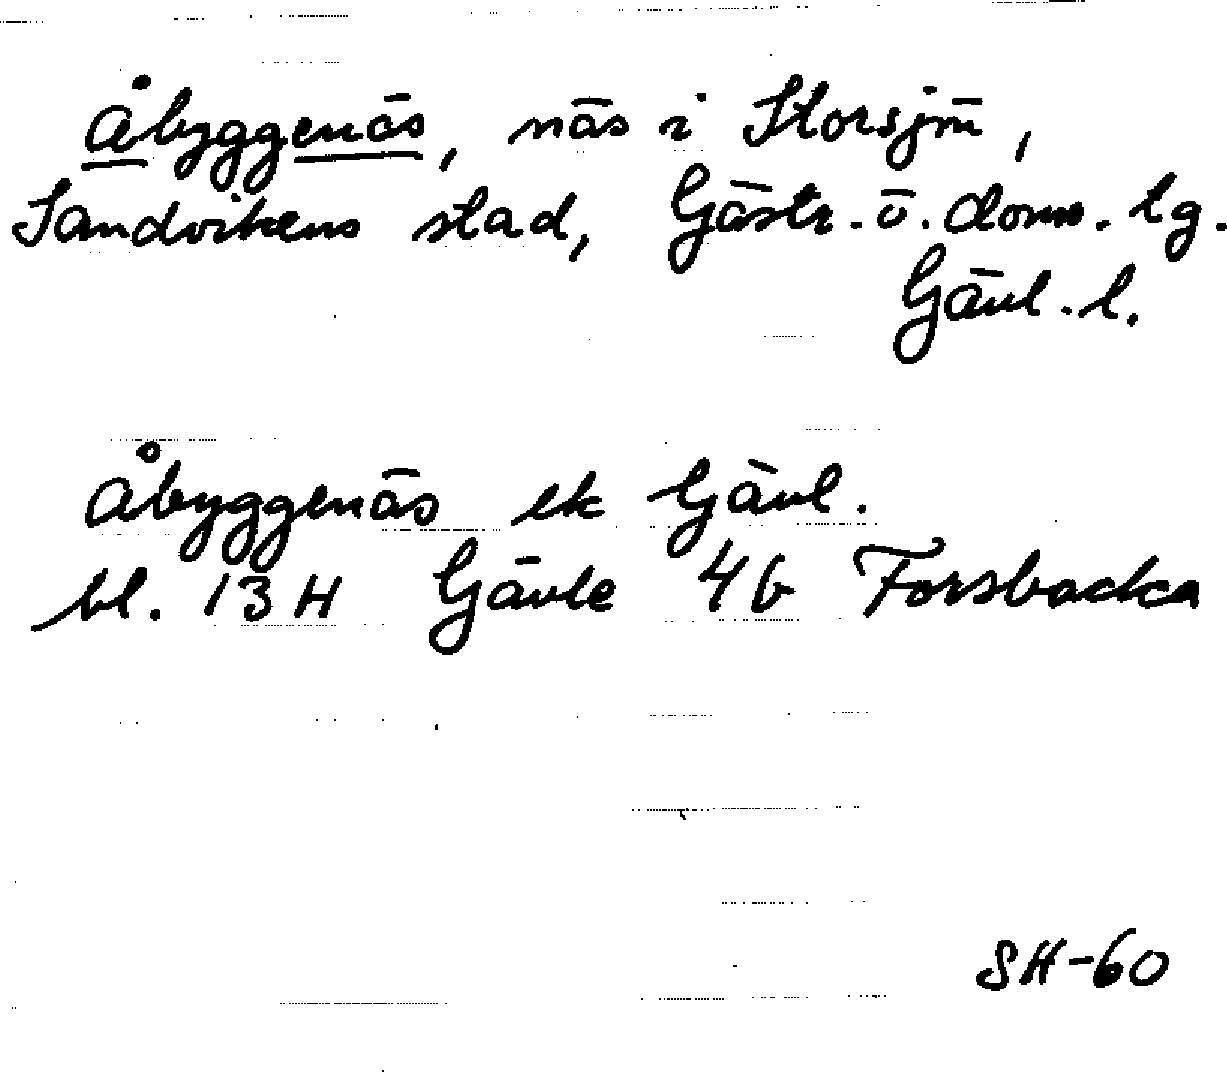 Åbyggenäs, näs i Storsjön,
Sandvikens stad, Gästr. ö. doms. lg.
Gävl. l.
Åbyggenäs ek Gävl.
bl. 13H Gävle 4b Forsbacka
SH-60